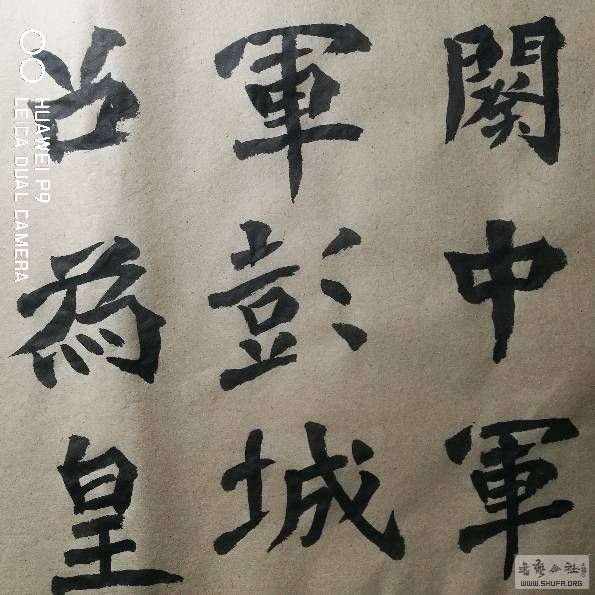 闋中軍
軍彭城
召為皇
HUAWEI P9
LEICA DUAL CAMERA
公社
WWW.SHUFA.ORG